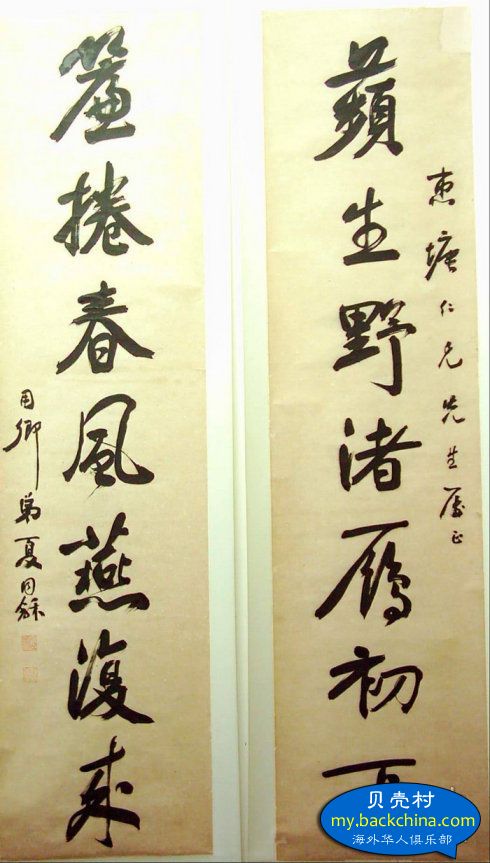 惠塘仁兄先生属正
蘋生野渚鴈初
簾捲春風燕復來
用卿弟夏同龢
贝壳村
my.backchina.com
海外华人俱乐部